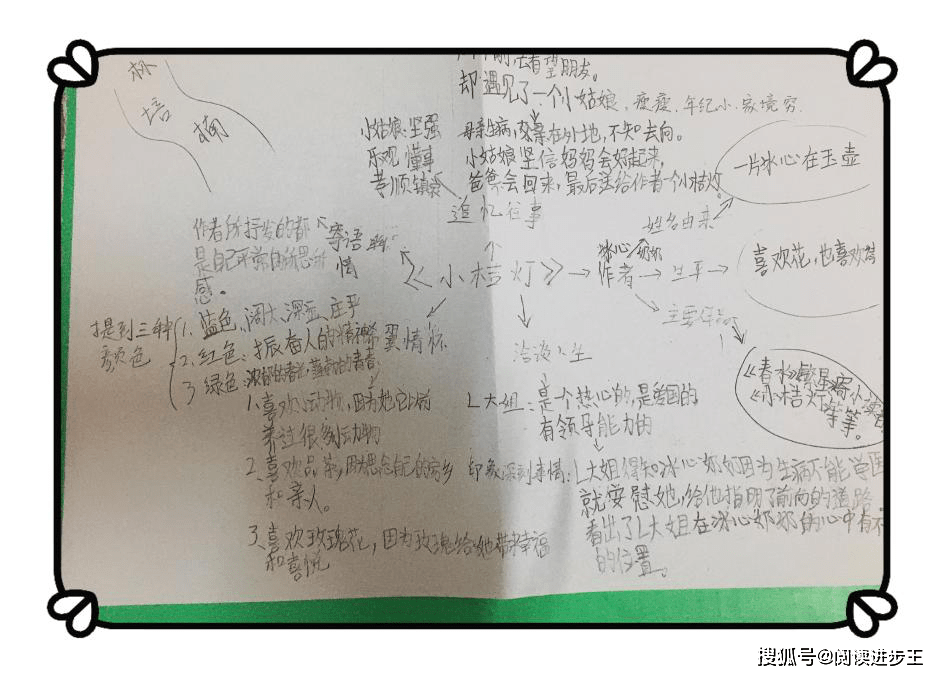 林
培
楠
去看望朋友。
却遇见了一个小姑娘，瘦瘦，年纪小，家境穷
小姑娘：坚强
乐观 懂事
孝顺 镇定
母亲生病，父亲在外地，不知去向。
小姑娘坚信妈妈会好起来，
爸爸会回来，最后送给作者一个小桔灯。
追忆往事
一片冰心在玉壶
姓名由来
作者所抒发的都
是自己平常的所思所
感。
寄语
情
《小桔灯》→作者→生平→
冰心奶奶
喜欢花，也喜欢
主要作品
提到三种
颜色
1. 蓝色：阔大、深远、庄严
2. 红色：振奋人的精神
3 绿色：浓郁的春光，蓬勃的青春
情怀
1、喜欢小动物，因为她以前
养过很多动物
2、喜欢品茶，因为思念自己的家乡
和亲人。
3、喜欢玫瑰花，因为玫瑰给她带来幸福
和喜悦
洽谈人生
L大姐：是个热心的，是爱国的，
有领导能力的
印象深刻事情：L大姐得知冰心奶奶因为生病不能学医
就安慰她，给他指明了前向的道路
看出了L大姐在冰心奶奶的心中有不
的位置。
《春水》《繁星》《寄小读者》
《小桔灯》等等。
搜狐号@阅读进步王